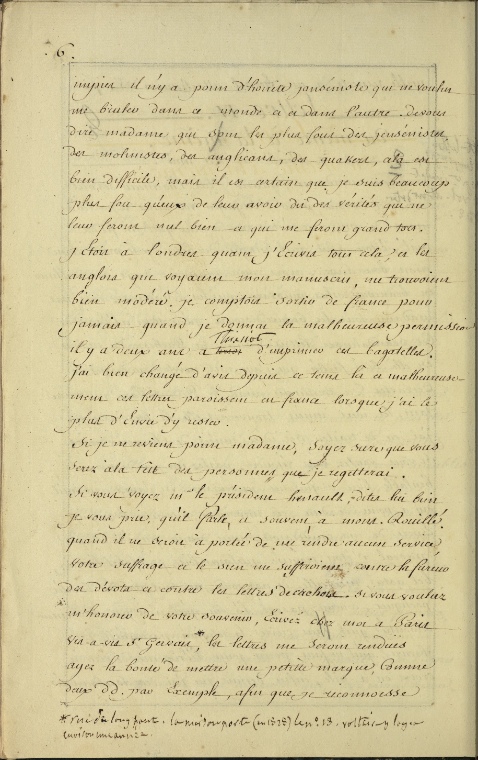 6.
impies il n'y a point d'honête janséniste qui ne voulut
me bruler dans ce monde ci et dans l'autre. de vous
dire madame qui sont les plus fous des jansénistes
des molinistes, des anglicans, des quakers, cela est
bien difficile, mais il est certain que je suis beaucoup
plus fou qu'eux de leur avoir dit des vérités qui ne
leur feront nul bien et qui me feront grand tort.
j'Étois à londres quant j'Écrivis tout cela, et les
anglois qui voyaient mon manuscrit, me trouvoient
bien modéré. je comptois sortir de france pour
jamais quand je donnai la malheureuse permission
il y a deux ans a Thiriot d'imprimer ces bagatelles.
j'ai bien changé d'avis depuis ce tems la et malheureuse-
ment ces lettres paroissent en france lorsque j'ai le
plus d'Envie d'y rester.
Si je ne reviens point madame, soyez sure que vous
serez a la tête des personnes que je regretterai.
Si vous voyez mr le président henault, dites lui bien
je vous prie, qu'il Parle, et souvent, à mons. Rouillé.
quand il ne seroit à portée de me rendre aucun service
votre suffrage et le sien me suffiroient contre la fureur
des dévots et contre les lettres de cachet. si vous voulez
m'honorer de votre souvenir, Ecrivez chez moi à Paris
vis-a-vis St Gervais,* les lettres me seront rendües
ayez la bonté de mettre une petitte marque, Comme
deux DD. par Exemple, afin que je reconnoesse
* rue de long pont. la maison porte (en 1828) le no. 13. voltaire y logea
environ une année.